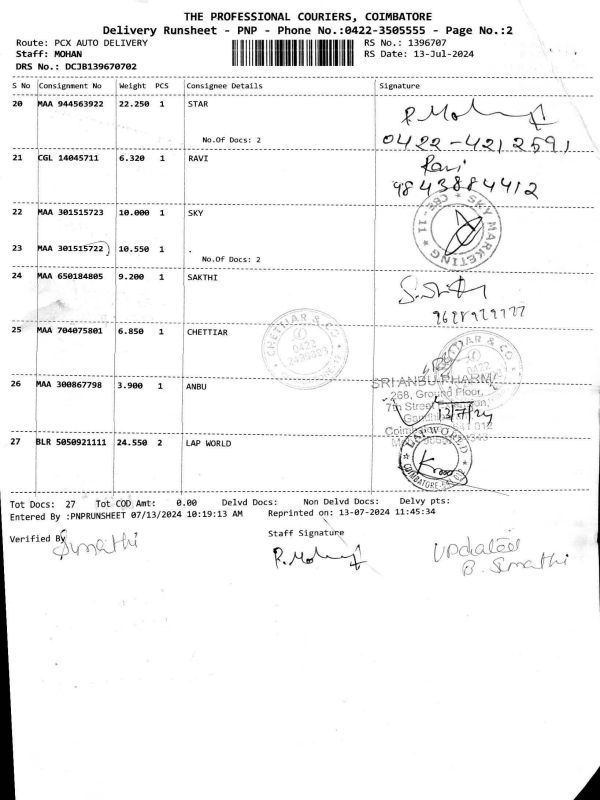 THE PROFESSIONAL COURIERS, COIMBATORE
Delivery Runsheet - PNP - Phone No.:0422-3505555 - Page No.:2
Route: PCX AUTO DELIVERY RS No.: 1396707
Staff: MOHAN RS Date: 13-Jul-2024
DRS No.: DCJB139670702
S No Consignment No Weight PCS Consignee Details Signature
20 MAA 944563922 22.250 1 STAR
R.Moh
No.Of Docs: 2
0422-4212591
21 CGL 14045711 6.320 1 RAVI
Ravi
9843884412
22 MAA 301515723 10.000 1 SKY
SKY MARKETING CBE-11
23 MAA 301515722 10.550 1 .
No.Of Docs: 2
24 MAA 650184805 9.200 1 SAKTHI
25 MAA 704075801 6.850 1 CHETTIAR
CHETTIAR & CO
0422
26 MAA 300867798 3.900 1 ANBU
SRI ANBU PHARMA
268, Ground Floor,
7th Street
27 BLR 5050921111 24.550 2 LAP WORLD
LAP WORLD
COIMBATORE
Tot Docs: 27 Tot COD Amt: 0.00 Delvd Docs: Non Delvd Docs: Delvy pts:
Entered By :PNPRUNSHEET 07/13/2024 10:19:13 AM Reprinted on: 13-07-2024 11:45:34
Verified By Sumathi
Staff Signature
R.Moh
Updated
B. Sumathi